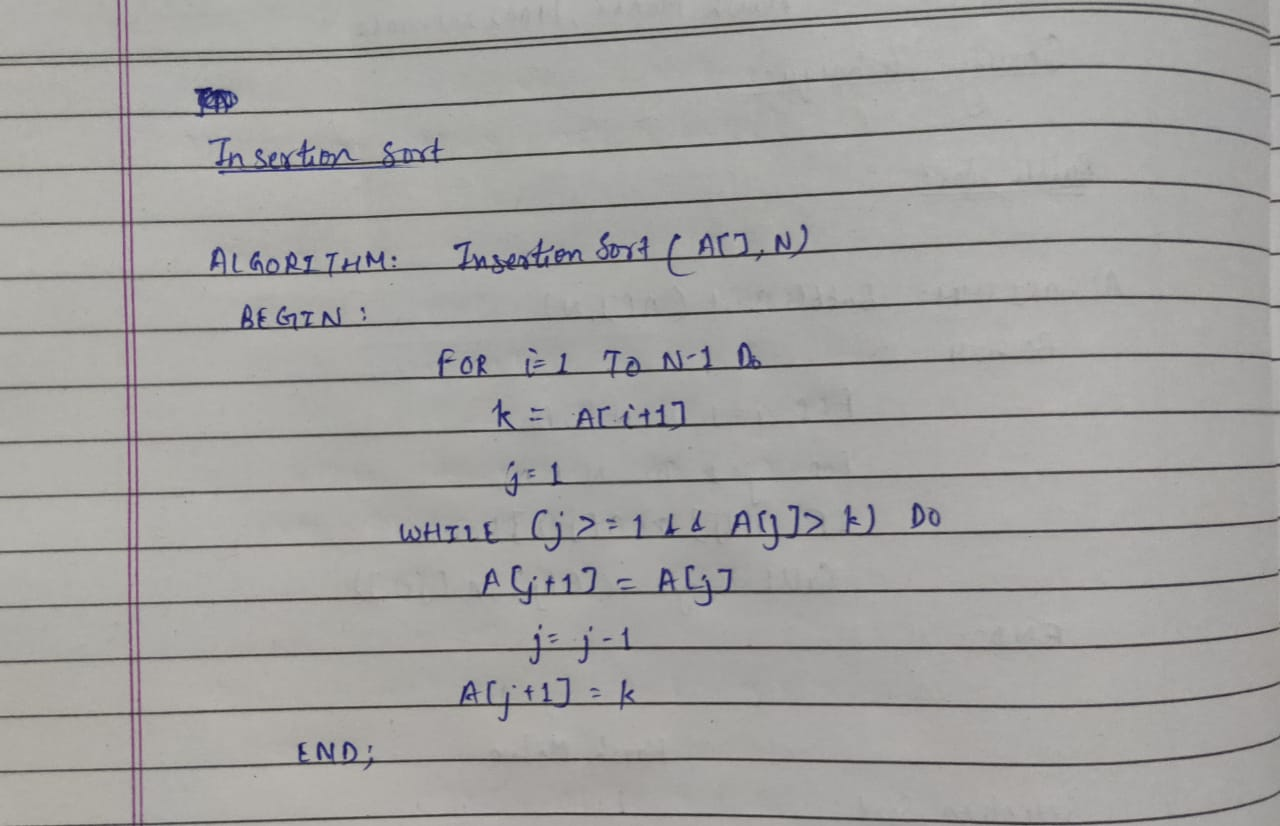 Insertion Sort
ALGORITHM: Insertion Sort ( A[], N)
BEGIN :
FOR i=1 TO N-1 Do
k = A[i+1]
j=1
WHILE (j >= 1 && A[j] > k) DO
A[j+1] = A[j]
j = j-1
A[j+1] = k
END;